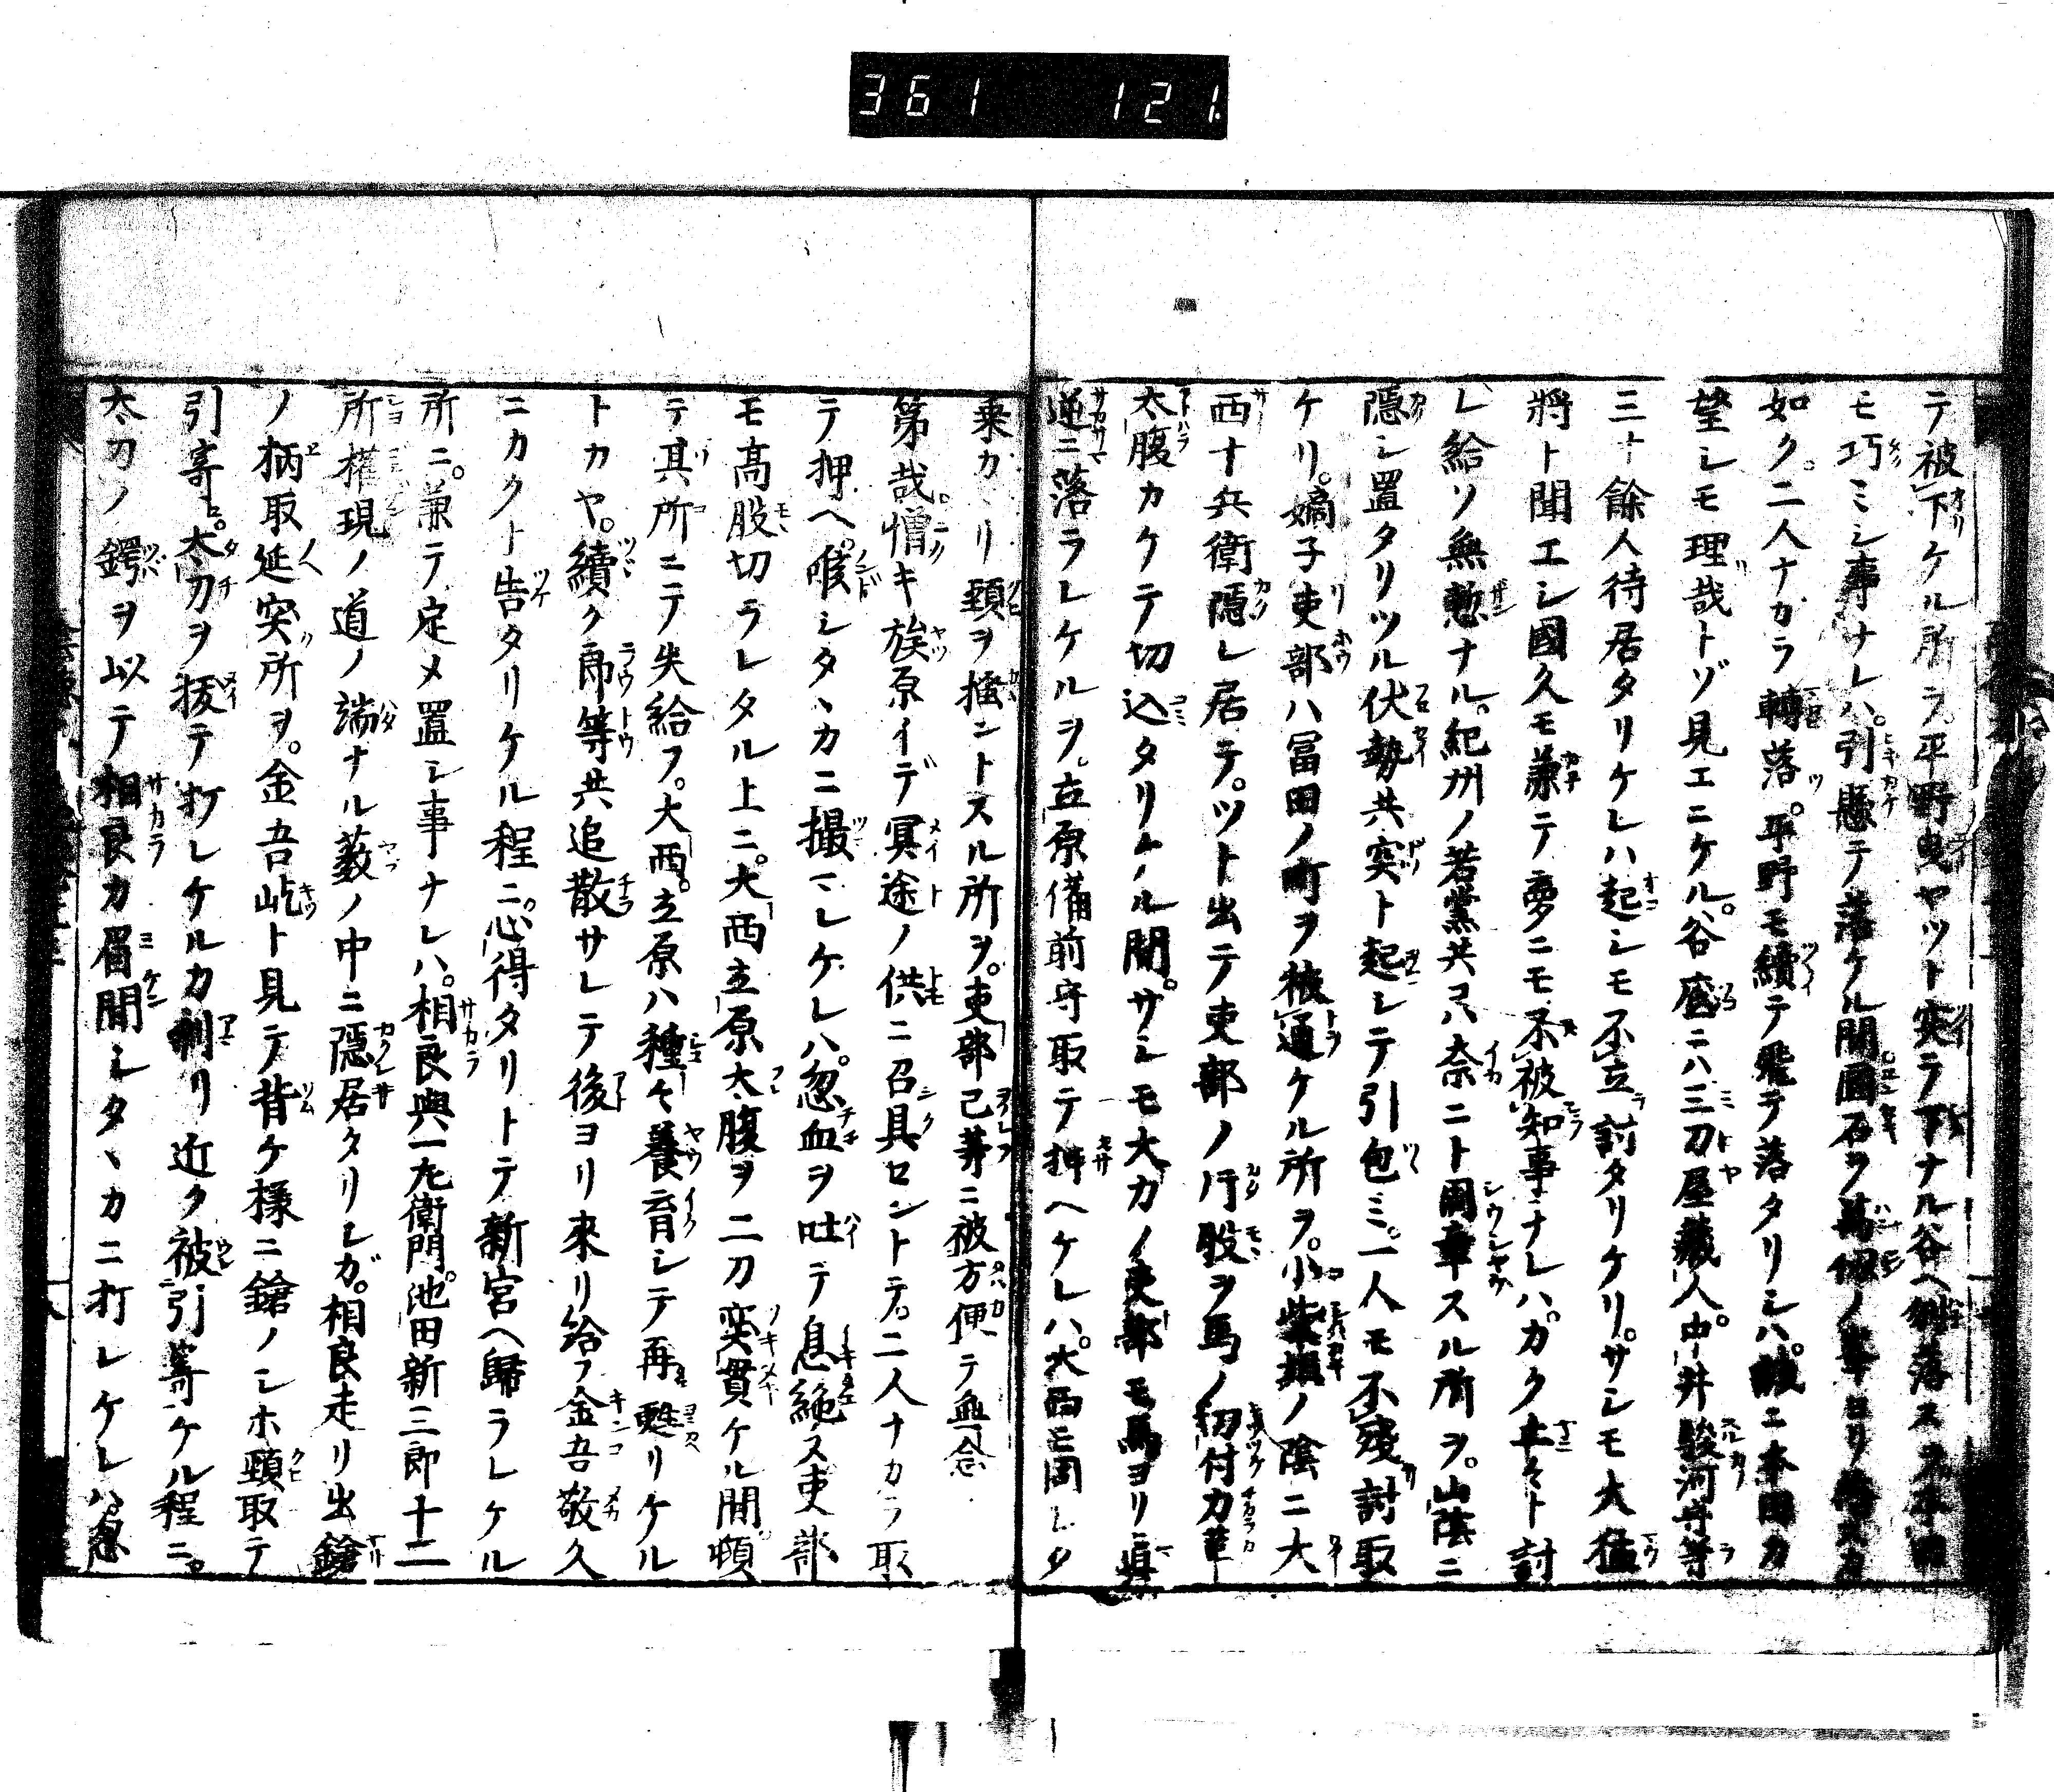 361 121.
テ被下ケル所ヲ。平野曳ヤツト突ラ下ナル谷ヘ落ス本田
モ巧ミシ事ナレハ。引懸テ落ケル間圓石ヲ萬仭ノ峯ヨリ
如ク。二人ナカラ轉落。平野モ續テ飛テ落タリシハ。誠ニ本田カ
望シモ理哉トゾ見エニケル。谷底ニハ三刀屋藏人。中井駿河守等
三十餘人待居タリケレハ起シモ不立討タリケリ。サシモ大猛
將ト聞エシ國久モ兼テ夢ニモ不被知事ナレハ。カク年々ト討
レ給ソ無慙ナル。紀州ノ若黨共コハ奈ニト周章スル所ヲ。山陰ニ
隱シ置タリツル伏勢共突ト起シテ引包ミ。一人モ不殘討取
ケリ。嫡子吏部ハ冨田ノ町ヲ被通ケル所ヲ。小柴垣ノ陰ニ大
西十兵衛隱レ居テ。ツト出テ吏部ノ片股ヲ馬ノ切付力革
太腹カケテ切込タリケル間。サシモ大カノ吏部モ馬ヨリ眞
逆ニ落ラレケルヲ。立原備前守取テ押ヘケレハ。大西モ同シク
乗カヽリ頚ヲ掻ントスル所ヲ。吏部己等ニ被方便テ無念
第哉。憎キ族原イデ冥途ノ供ニ召具セントテ。二人ナカラ取
テ押ヘ。喉シタヽカニ撮マレケレハ。忽血ヲ吐テ息絶ス吏部
モ髙股切ラレタル上ニ。大西立原太腹ヲ二刀突貫ケル間。頓
テ其所ニテ失給フ。大西。立原ハ種々養育シテ再甦リケル
トカヤ。續ク郎等共追散サレテ後ヨリ來リ給フ金吾敬久
ニカクト告タリケル程ニ。心得タリトテ新宮ヘ歸ラレケル
所ニ。兼テ定メ置シ事ナレハ。相良與一九衛門。池田新三郎十二
所權現ノ道ノ端ナル薮ノ中ニ隱居タリシガ。相良走リ出鎗
ノ柄取延突所ヲ。金吾屹ト見テ背ケ様ニ鎗ノシホ頸取テ
引寄セ。太刀ヲ抜テ打レケルカ剰リ近ク被引寄ケル程ニ。
太刀ノ鍔ヲ以テ相良カ眉間シタヽカニ打レケレハ忽